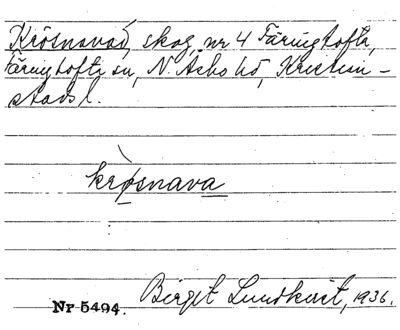 Krösnavad, skog, nr 4 Färingtofta,
Färingtofta sn, N. Åsbo hd, Kristian-
stads l.
krø̀snava
Nr 5494.
Birgit Lundkvist, 1936.